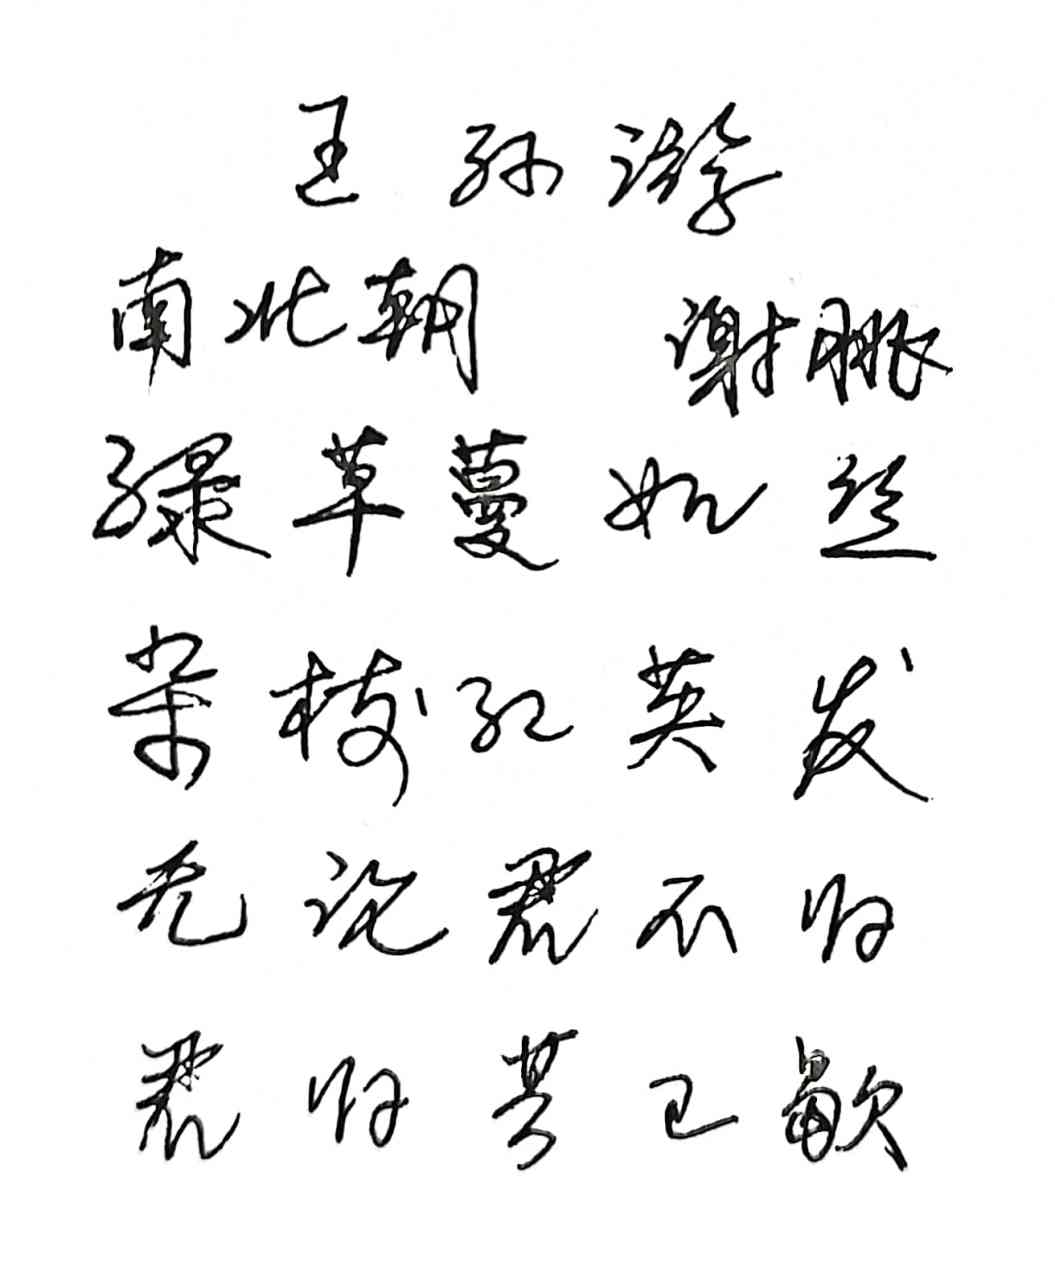 王孙游
南北朝 谢朓
绿草蔓如丝
杂树红英发
无论君不归
君归芳已歇